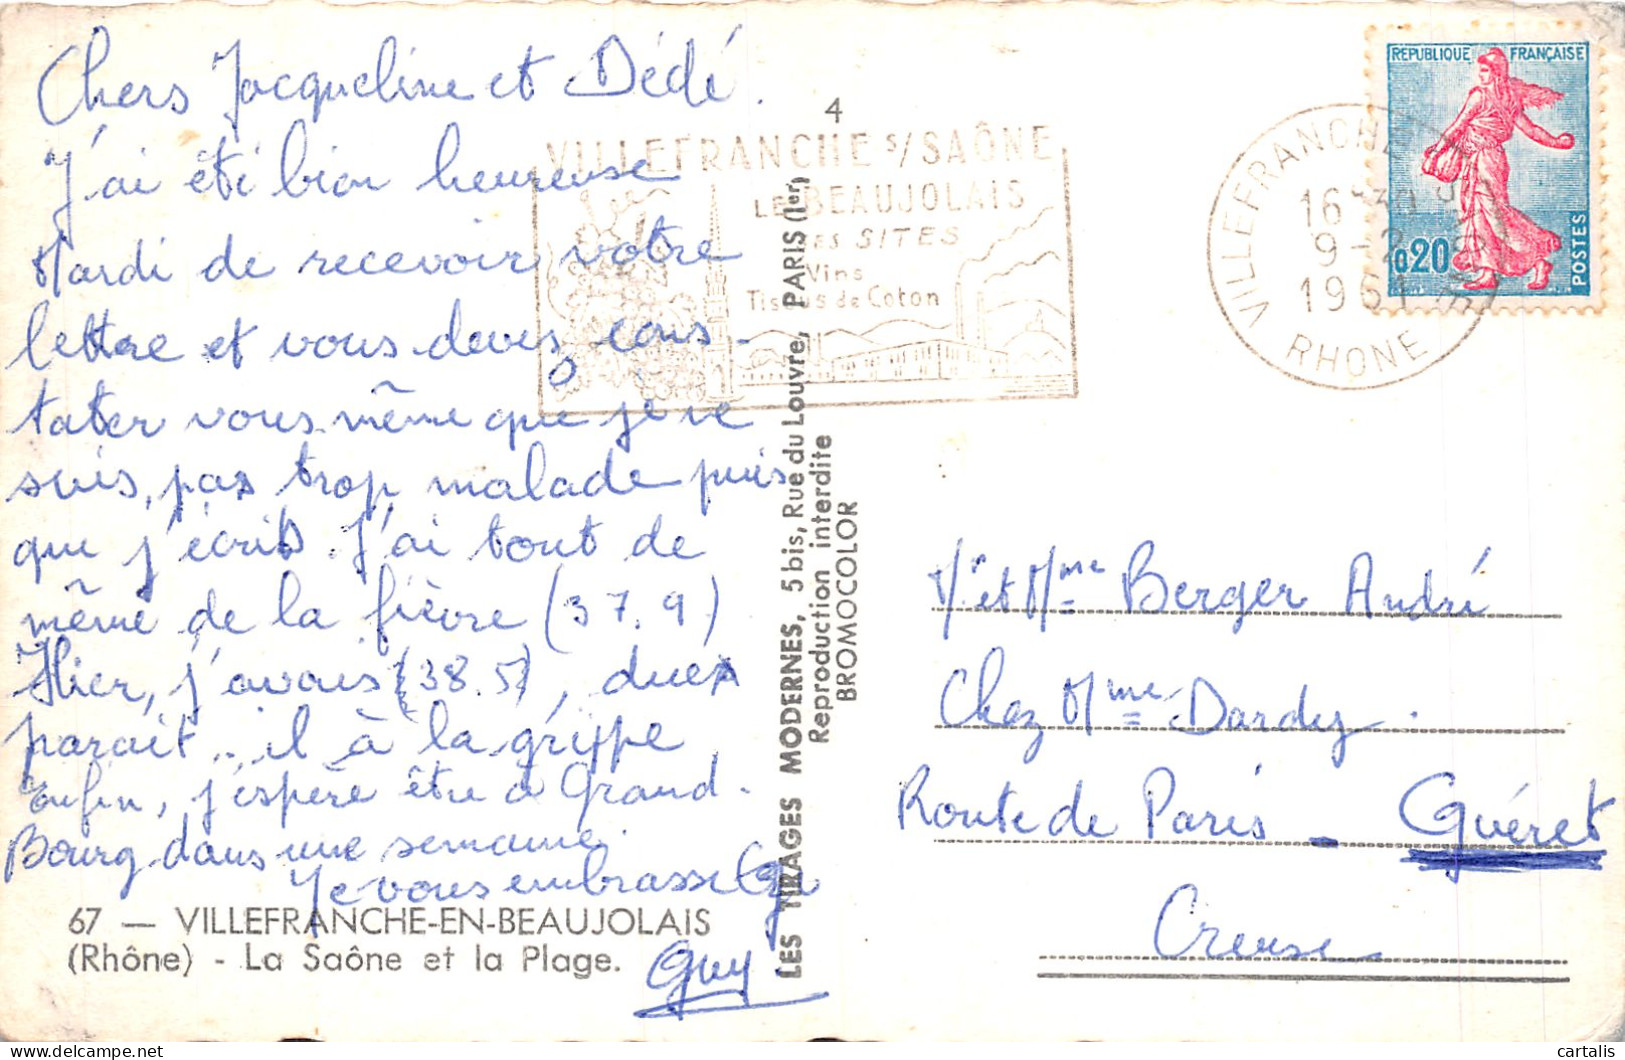 Chers Jacqueline et Dédé.
J'ai été bien heureuse
Mardi de recevoir votre
lettre et vous devez cons-
tater vous même que je ne
suis, pas trop malade puis
que j'écris. J'ai tout de
même de la fièvre (37.9)
Hier, j'avais (38.5),
parait.. il à la grippe
Enfin, j'espère être à Grand.
Bourg dans une semaine.
Je vous embrasse
Guy
67 — VILLEFRANCHE-EN-BEAUJOLAIS
(Rhône) - La Saône et la Plage.
4
LES TIRAGES MODERNES, 5 bis, Rue du Louvre, PARIS (1er)
Reproduction interdite
BROMOCOLOR
VILLEFRANCHE s/SAÔNE
LE BEAUJOLAIS
SES SITES
Vins
Tissus de Coton
VILLEFRANCHE
16 H30
9-2
1961
RHONE
REPUBLIQUE FRANÇAISE
0,20
POSTES
Mr et Mme Berger André
Chez Mme Dardy.
Route de Paris - Guéret
Creuse
cartalis